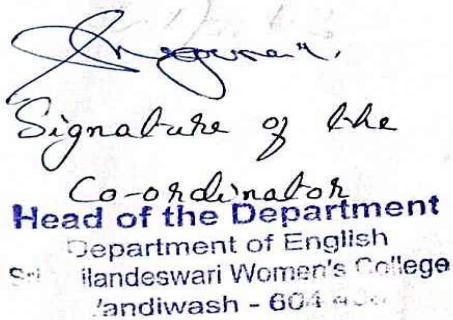 Signature of the
Co-ordinator
Head of the Department
Department of English
Sri ilandeswari Women's College
andiwash - 604